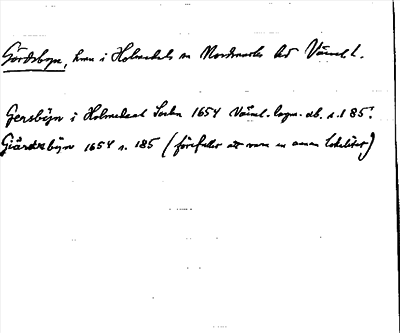 Gördsbyn, hmn i Holmedals sn Nordmarks hd Värml.
Gersbÿn i Holmedaal Sockn 1654 Värml. lagm. db. s. 185.
Giärdzbÿn 1654 s. 185 (förefaller att vara en annan lokalitet)